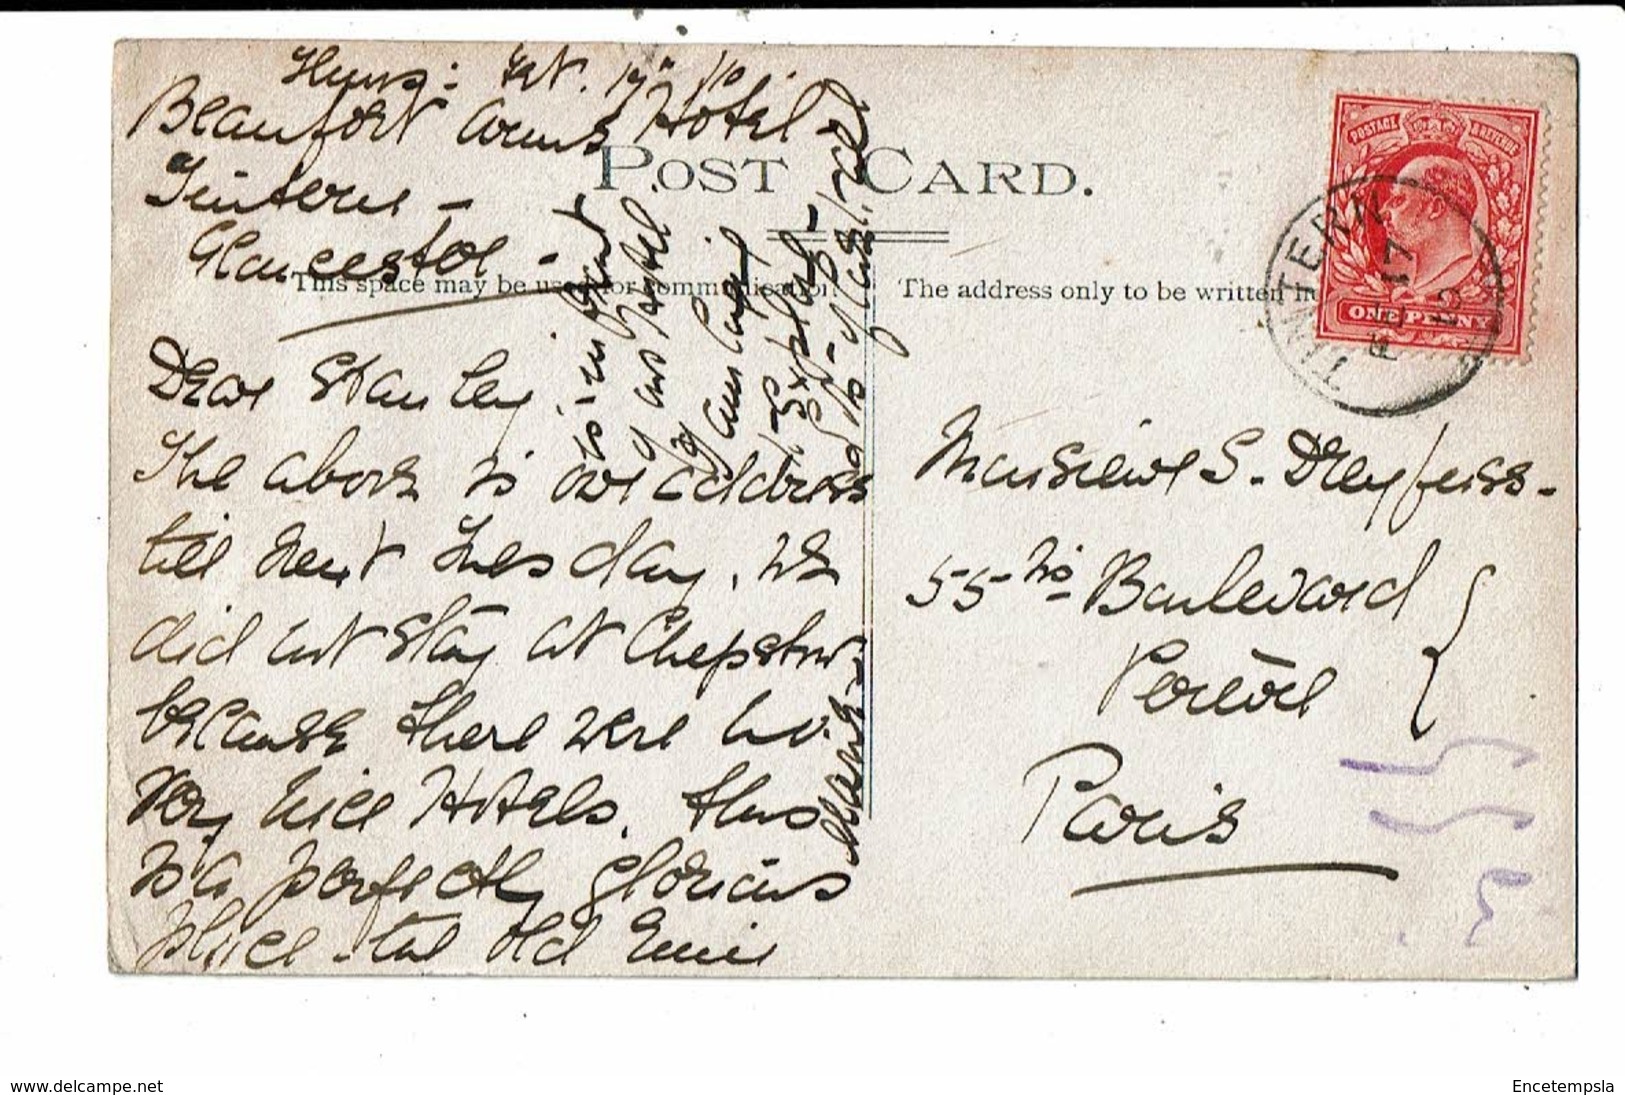 Thurs: Feb. 17th /10.
Beaufort Arms Hotel
Tintern -
Gloucester -
POST CARD.
This space may be used for communication
The address only to be written
Dear Stanley.
The above is our address
till next Tuesday. We
did not stay at Chepstow
because there were no
very nice Hotels. This
is a perfectly glorious
place - the old
is in front
of our Hotel
POSTAGE & REVENUE
ONE PENNY
TINTERN
FE 17
10
Monsieur S. Dreyfuss -
55 bis Boulevard
Pereire
Paris
www.delcampe.net
Encetempsla